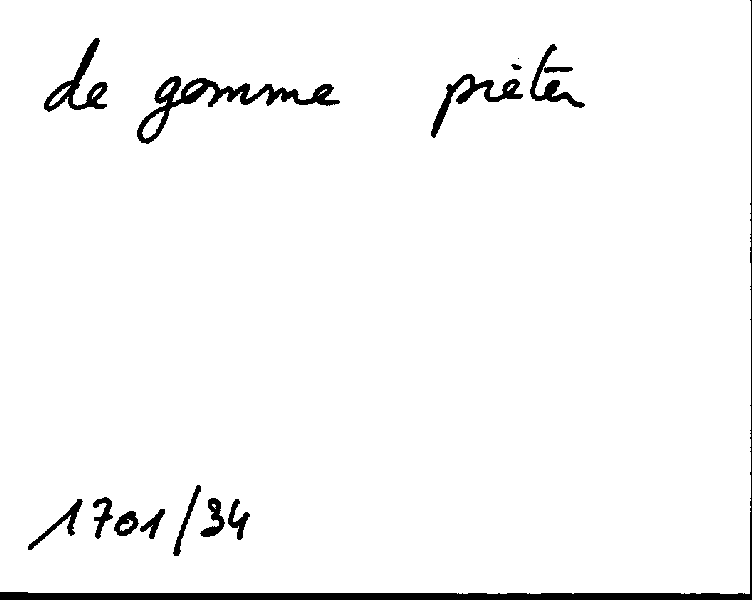 de gomme pieter
1701/34